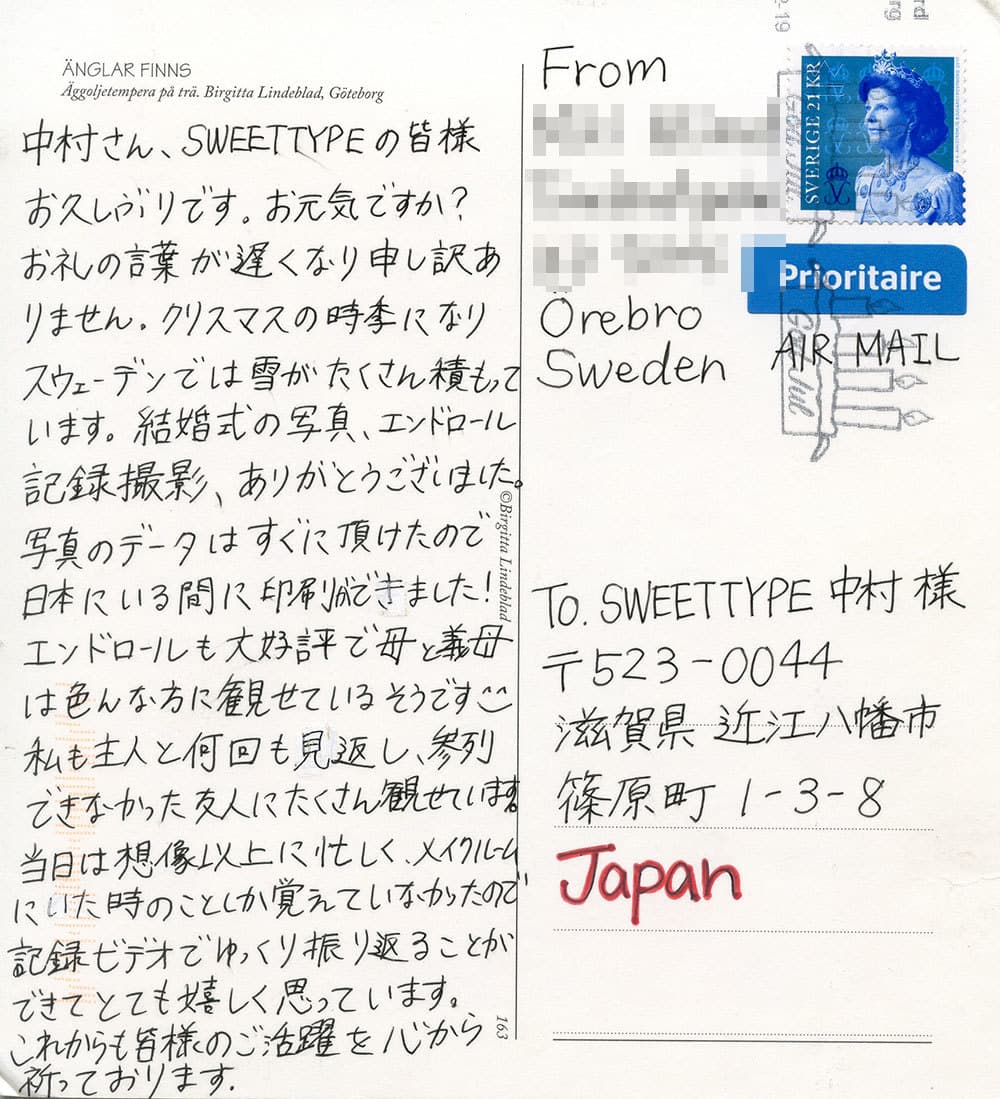 ÄNGLAR FINNS
Äggoljetempera på trä. Birgitta Lindeblad, Göteborg
中村さん、SWEETTYPEの皆様
お久しぶりです。お元気ですか?
お礼の言葉が遅くなり申し訳あ
りません。クリスマスの時季になり
スウェーデンでは雪がたくさん積もって
います。結婚式の写真、エンドロール
記録撮影、ありがとうございました。
写真のデータはすぐに頂けたので
日本にいる間に印刷ができました!
エンドロールも大好評で母と義母
は色んな方に観せているそうです
私も主人と何回も見返し、参列
できなかった友人にたくさん観せています。
当日は想像以上に忙しく、メイクルーム
にいた時のことしか覚えていなかったので
記録ビデオでゆっくり振り返ることが
できてとても嬉しく思っています。
これからも皆様のご活躍を心から
祈っております.
©Birgitta Lindeblad
163
From
Örebro
Sweden
SVERIGE 21 KR
Prioritaire
AIR MAIL
God Jul
To. SWEETTYPE 中村様
〒523-0044
滋賀県 近江八幡市
篠原町 1-3-8
Japan